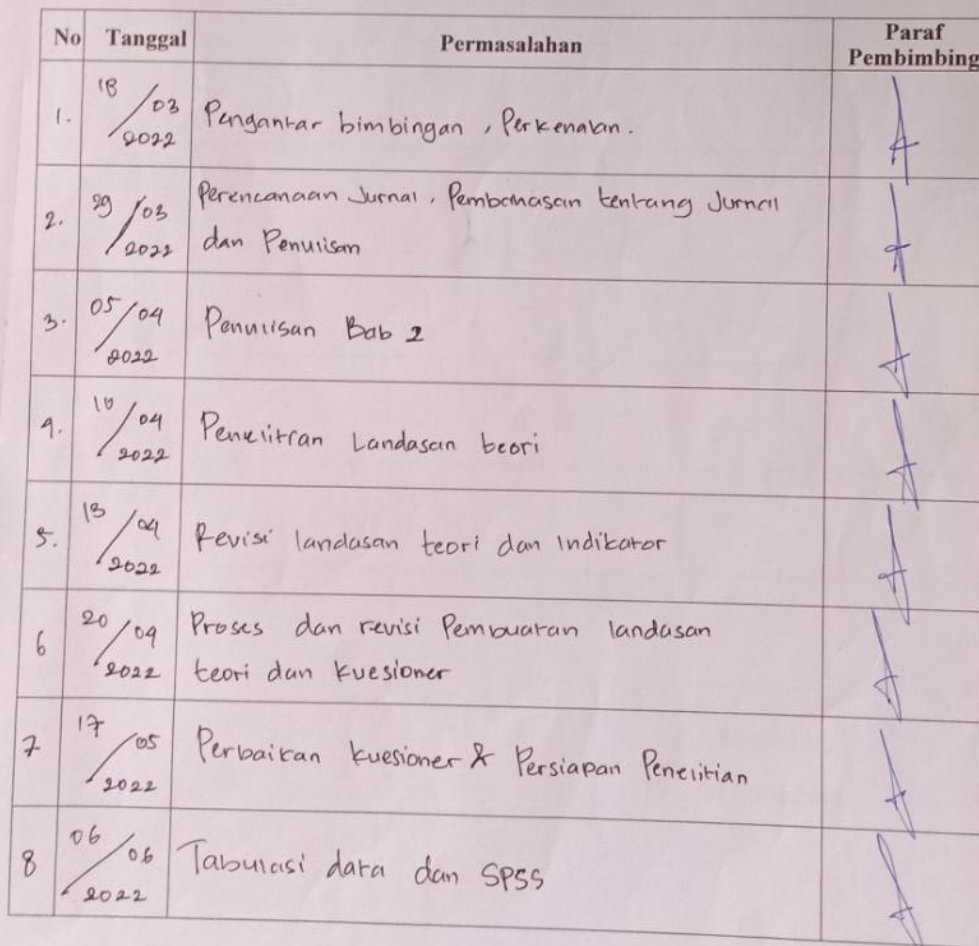 No Tanggal Permasalahan Paraf Pembimbing
1. 18/03 2022 Pengantar bimbingan, Perkenalan.
2. 29/03 2022 Perencanaan Jurnal, Pembahasan tentang Jurnal
dan Penulisan
3. 05/04 2022 Penulisan Bab 2
4. 10/04 2022 Penelitian Landasan teori
5. 13/04 2022 Revisi landasan teori dan Indikator
6 20/04 2022 Proses dan revisi Pembuatan landasan
teori dan kuesioner
7 17/05 2022 Perbaikan kuesioner & Persiapan Penelitian
8 06/06 2022 Tabulasi data dan SPSS